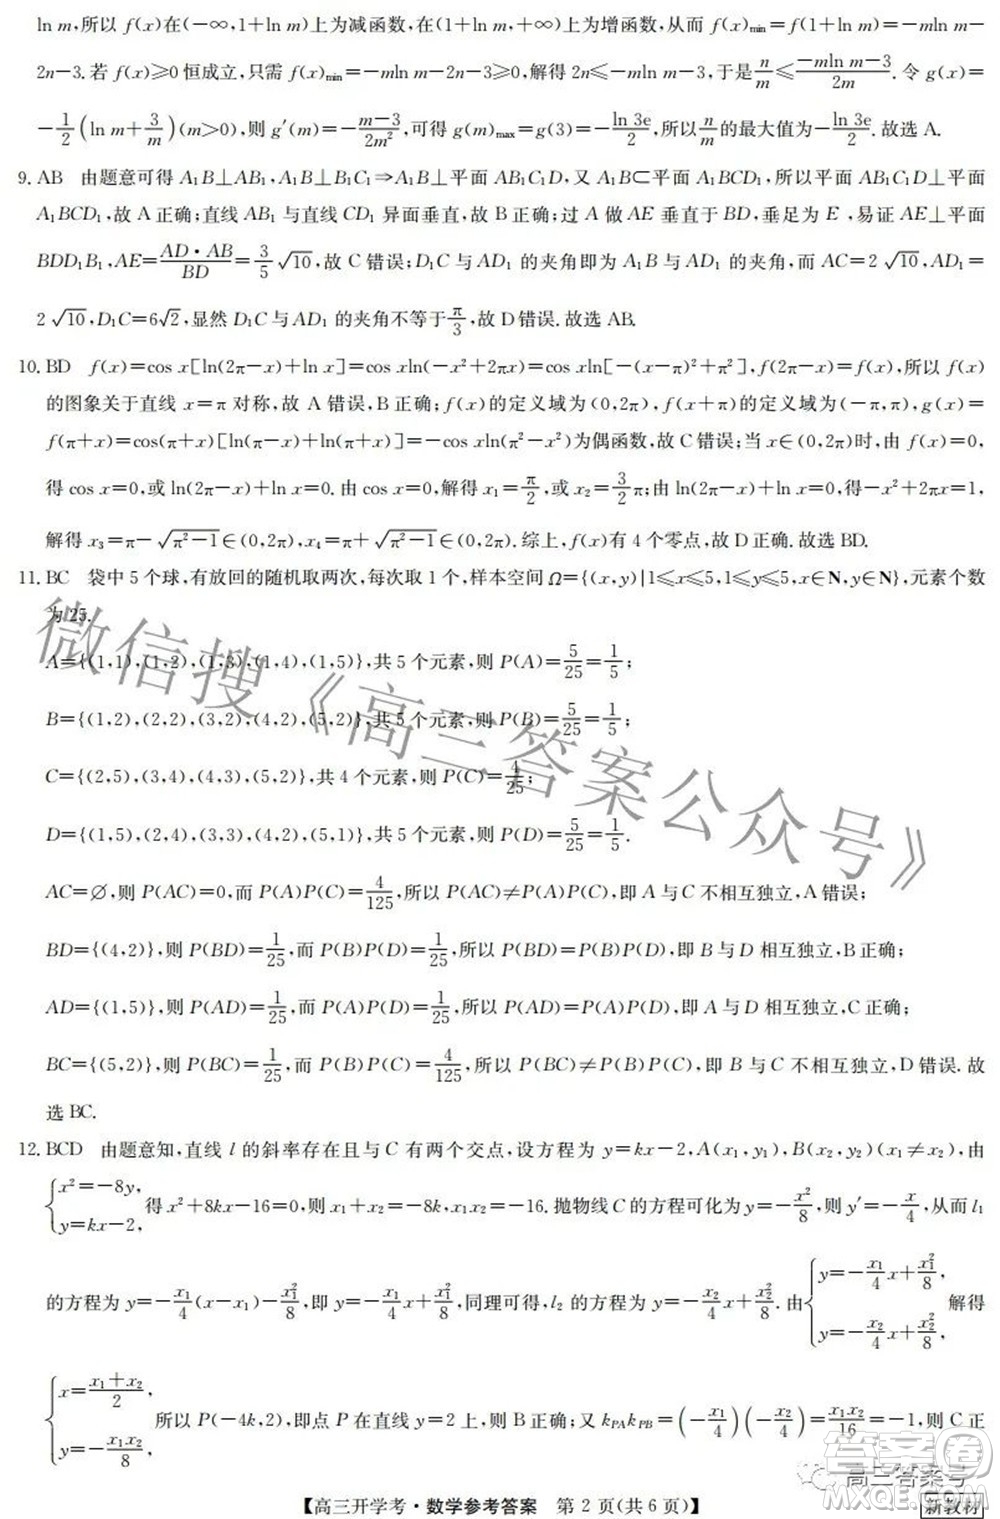 ln m,所以 f(x)在(-∞,1+ln m)上为减函数,在(1+ln m,+∞)上为增函数,从而 f(x)min=f(1+ln m)=-mln m-
2n-3.若 f(x)≥0 恒成立,只需 f(x)min=-mln m-2n-3≥0,解得 2n≤-mln m-3,于是n/m≤(-mln m-3)/2m.令 g(x)=
-1/2(ln m+3/m)(m>0),则 g′(m)=-(m-3)/2m²,可得 g(m)max=g(3)=-ln 3e/2,所以n/m的最大值为-ln 3e/2.故选 A.
9. AB 由题意可得 A₁B⊥AB₁,A₁B⊥B₁C₁⇒A₁B⊥平面 AB₁C₁D,又 A₁B⊂平面 A₁BCD₁,所以平面 AB₁C₁D⊥平面
A₁BCD₁,故 A 正确;直线 AB₁ 与直线 CD₁ 异面垂直,故 B 正确;过 A 做 AE 垂直于 BD,垂足为 E,易证 AE⊥平面
BDD₁B₁,AE=AD·AB/BD=3/5√10,故 C 错误;D₁C 与 AD₁ 的夹角即为 A₁B 与 AD₁ 的夹角,而 AC=2√10,AD₁=
2√10,D₁C=6√2,显然 D₁C 与 AD₁ 的夹角不等于π/3,故 D 错误.故选 AB.
10. BD f(x)=cos x[ln(2π-x)+ln x]=cos xln(-x²+2πx)=cos xln[-(x-π)²+π²],f(2π-x)=f(x),所以 f(x)
的图象关于直线 x=π 对称,故 A 错误,B 正确;f(x)的定义域为(0,2π),f(x+π)的定义域为(-π,π),g(x)=
f(π+x)=cos(π+x)[ln(π-x)+ln(π+x)]=-cos xln(π²-x²)为偶函数,故 C 错误;当 x∈(0,2π)时,由 f(x)=0,
得 cos x=0,或 ln(2π-x)+ln x=0.由 cos x=0,解得 x₁=π/2,或 x₂=3/2π;由 ln(2π-x)+ln x=0,得-x²+2πx=1,
解得 x₃=π-√(π²-1)∈(0,2π),x₄=π+√(π²-1)∈(0,2π).综上,f(x)有 4 个零点,故 D 正确.故选 BD.
11. BC 袋中 5 个球,有放回的随机取两次,每次取 1 个,样本空间 Ω={(x,y)|1≤x≤5,1≤y≤5,x∈N,y∈N},元素个数
为 25.
A={(1,1),(1,2),(1,3),(1,4),(1,5)},共 5 个元素,则 P(A)=5/25=1/5;
B={(1,2),(2,2),(3,2),(4,2),(5,2)},共 5 个元素,则 P(B)=5/25=1/5;
C={(2,5),(3,4),(4,3),(5,2)},共 4 个元素,则 P(C)=4/25;
D={(1,5),(2,4),(3,3),(4,2),(5,1)},共 5 个元素,则 P(D)=5/25=1/5.
AC=∅,则 P(AC)=0,而 P(A)P(C)=4/125,所以 P(AC)≠P(A)P(C),即 A 与 C 不相互独立,A 错误;
BD={(4,2)},则 P(BD)=1/25,而 P(B)P(D)=1/25,所以 P(BD)=P(B)P(D),即 B 与 D 相互独立,B 正确;
AD={(1,5)},则 P(AD)=1/25,而 P(A)P(D)=1/25,所以 P(AD)=P(A)P(D),即 A 与 D 相互独立,C 正确;
BC={(5,2)},则 P(BC)=1/25,而 P(B)P(C)=4/125,所以 P(BC)≠P(B)P(C),即 B 与 C 不相互独立,D 错误.故
选 BC.
12. BCD 由题意知,直线 l 的斜率存在且与 C 有两个交点,设方程为 y=kx-2,A(x₁,y₁),B(x₂,y₂)(x₁≠x₂),由
{x²=-8y, y=kx-2, 得 x²+8kx-16=0,则 x₁+x₂=-8k,x₁x₂=-16.抛物线 C 的方程可化为 y=-x²/8,则 y′=-x/4,从而 l₁
的方程为 y=-x₁/4(x-x₁)-x₁²/8,即 y=-x₁/4x+x₁²/8,同理可得,l₂ 的方程为 y=-x₂/4x+x₂²/8.由{y=-x₁/4x+x₁²/8, y=-x₂/4x+x₂²/8, 解得
{x=(x₁+x₂)/2, y=-x₁x₂/8, 所以 P(-4k,2),即点 P 在直线 y=2 上,则 B 正确;又 kPAkPB=(-x₁/4)(-x₂/4)=x₁x₂/16=-1,则 C 正
【高三开学考·数学参考答案 第 2 页(共 6 页)】
新教材
微信搜《高三答案公众号》
高三答案号
答案圈
MXQE.COM